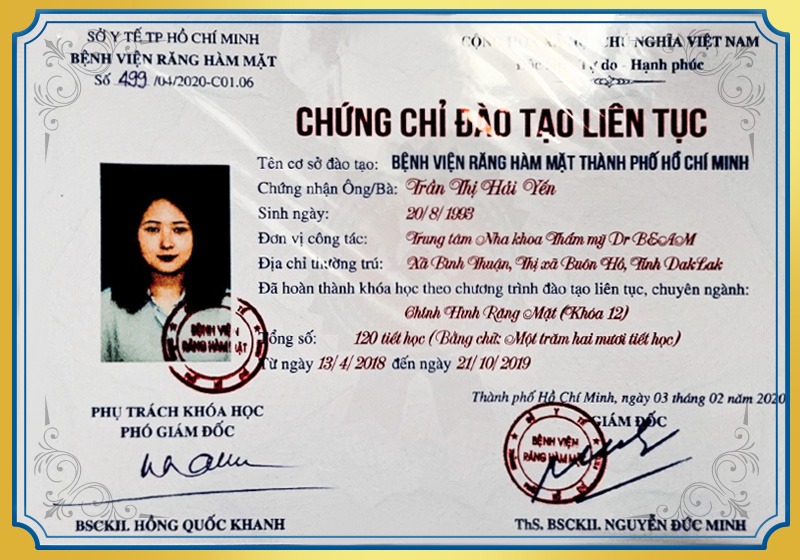 SỞ Y TẾ TP HỒ CHÍ MINH
BỆNH VIỆN RĂNG HÀM MẶT
Số 499 /04/2020-C01.06
CHỦ NGHĨA VIỆT NAM
Tự do - Hạnh phúc
CHỨNG CHỈ ĐÀO TẠO LIÊN TỤC
Tên cơ sở đào tạo: BỆNH VIỆN RĂNG HÀM MẶT THÀNH PHỐ HỒ CHÍ MINH
Chứng nhận Ông/Bà: Trần Thị Hải Yến
Sinh ngày: 20/8/1993
Đơn vị công tác: Trung tâm Nha khoa Thẩm mỹ Dr BEAM
Địa chỉ thường trú: Xã Bình Thuận, Thị xã Buôn Hồ, Tỉnh DakLak
Đã hoàn thành khóa học theo chương trình đào tạo liên tục, chuyên ngành:
Chỉnh Hình Răng Mặt (Khóa 12)
Tổng số: 120 tiết học (Bằng chữ: Một trăm hai mươi tiết học)
Từ ngày 13/4/2018 đến ngày 21/10/2019
Thành phố Hồ Chí Minh, ngày 03 tháng 02 năm 2020
PHỤ TRÁCH KHÓA HỌC
PHÓ GIÁM ĐỐC
GIÁM ĐỐC
BỆNH VIỆN
RĂNG HÀM MẶT
BỆNH VIỆN
RĂNG HÀM MẶT
BSCKII. HỒNG QUỐC KHANH
ThS. BSCKII. NGUYỄN ĐỨC MINH